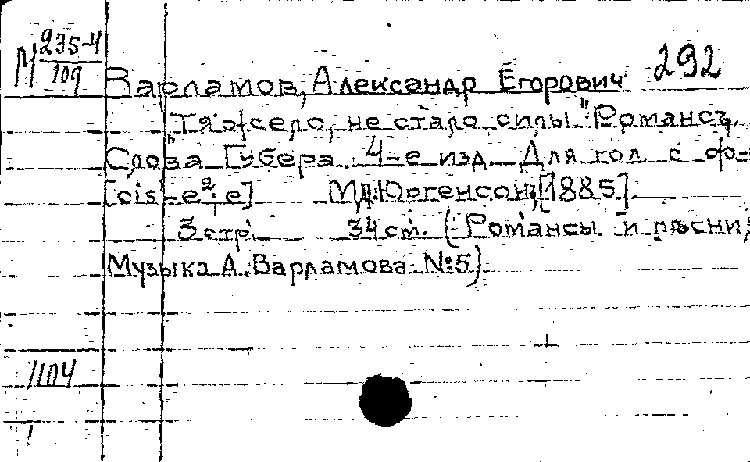 М 235-4
109
292
Варламов, Александр Егорович
"Тяжело, не стало силы". Романсъ.
Слова Губера. 4-е изд. Для гол. с ф-
[cis¹-e²; e] М., П. Юргенсон, [1885].
3 стр. 34 см. (Романсы и пѣсни,
Музыка А. Варламова № 5)
1104